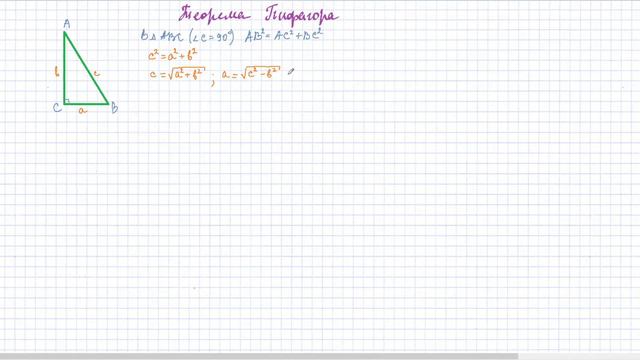 Теорема Пифагора
В △ ABC (∠C = 90°) AB² = AC² + BC²
c² = a² + b²
c = √(a² + b²) ; a = √(c² − b²)
A
b c
C a B